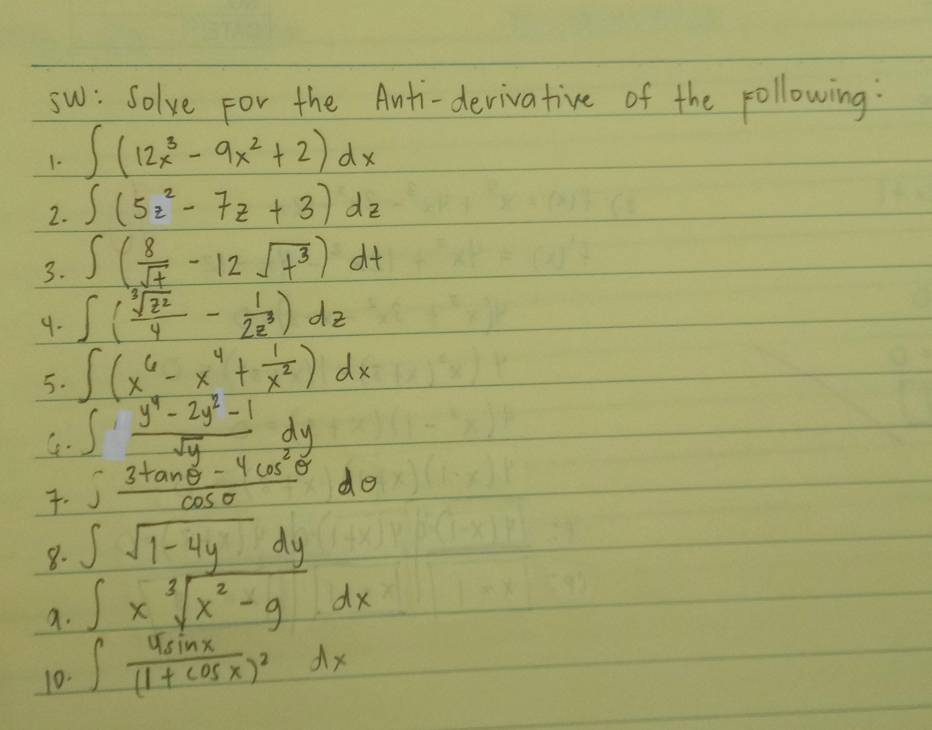 SW: Solve For the Anti-derivative of the following:
1. ∫ (12x³ - 9x² + 2) dx
2. ∫ (5z² - 7z + 3) dz
3. ∫ (8/√t - 12 √t³) dt
4. ∫ (∛z²/4 - 1/2z³) dz
5. ∫ (x⁶ - x⁴ + 1/x²) dx
6. ∫ y⁴ - 2y² - 1/√y dy
7. ∫ 3tanθ - 4cos²θ/cosθ dθ
8. ∫ √1 - 4y dy
9. ∫ x ∛x² - 9 dx
10. ∫ 4sinx/(1 + cosx)² dx